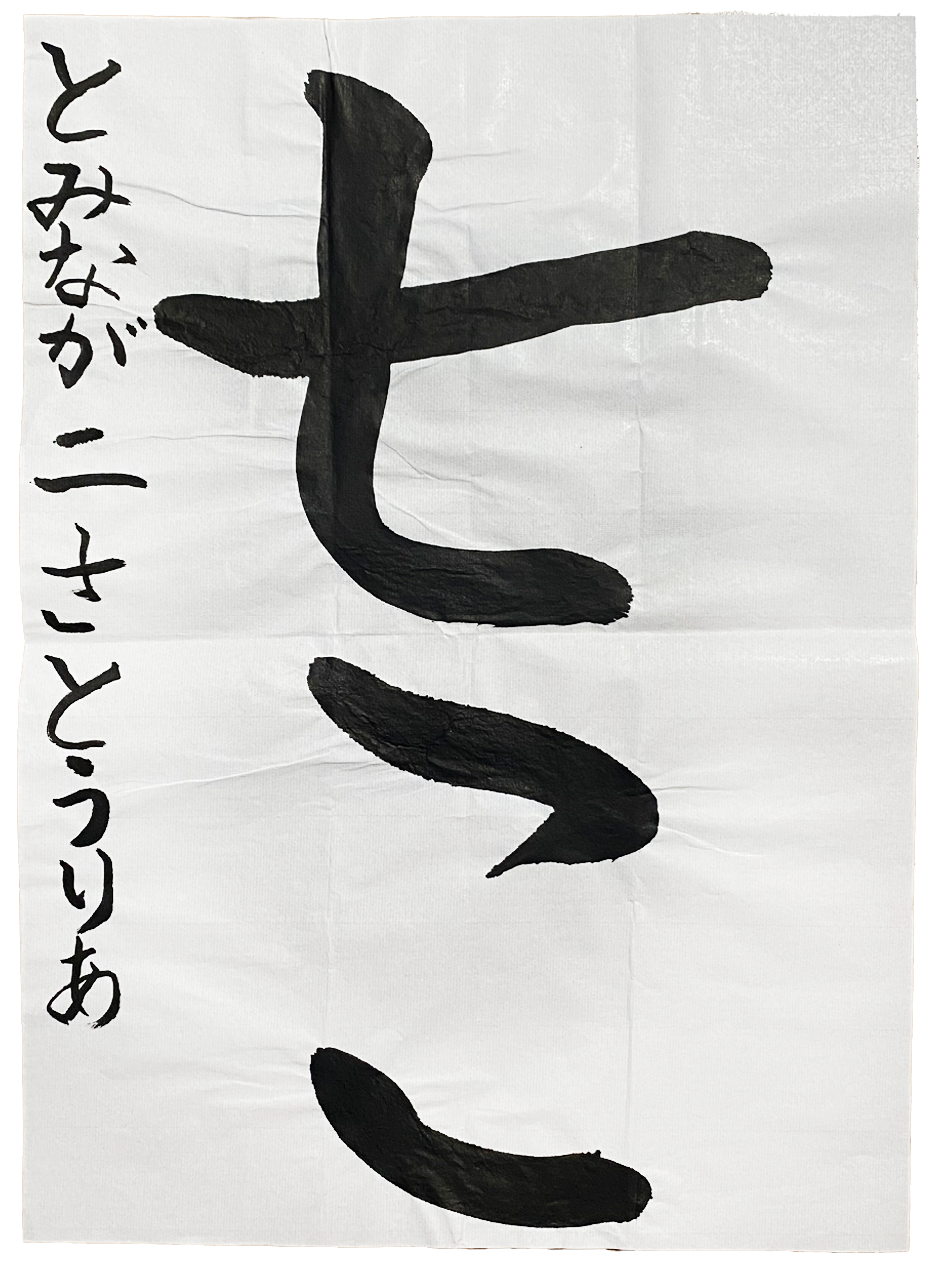 七こ
とみなが 二 さとうりあ